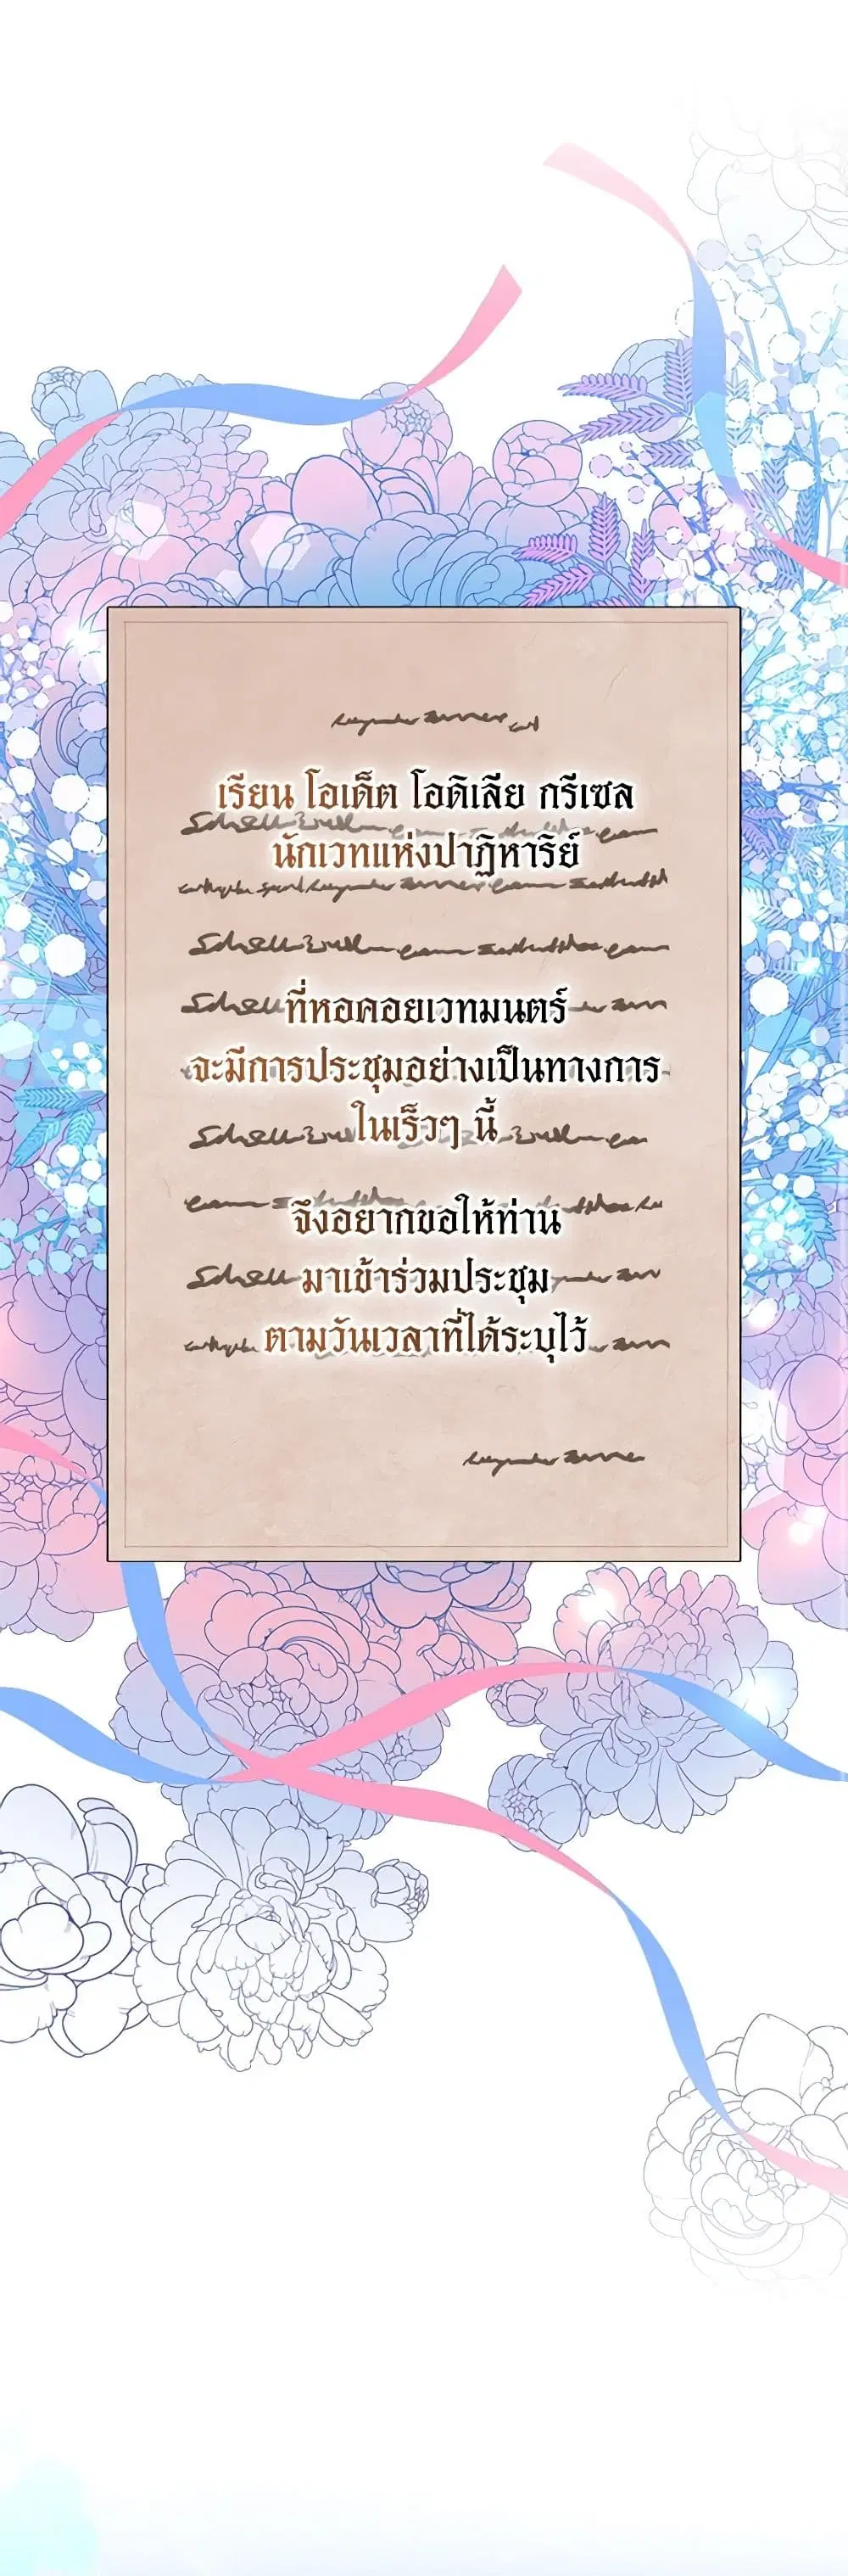 เรียน โอเด็ต โอดิเลีย กรีเซล
นักเวทแห่งปาฏิหาริย์
ที่หอคอยเวทมนตร์
จะมีการประชุมอย่างเป็นทางการ
ในเร็วๆ นี้
จึงอยากขอให้ท่าน
มาเข้าร่วมประชุม
ตามวันเวลาที่ได้ระบุไว้